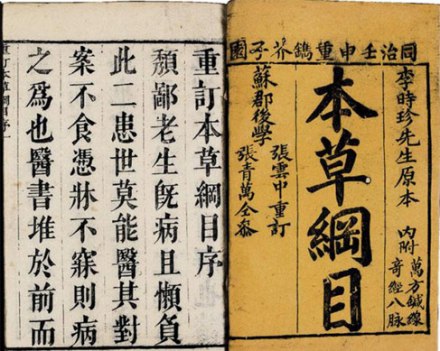 同治壬申重鐫芥子園
李時珍先生原本
內附萬方鍼線
奇經八脉
本草綱目
張雲中重訂
蘇郡後學
張青萬仝參
重訂本草綱目序
頹鄙老生旣病且懶負
此二患世莫能醫其對
案不食憑牀不寐則病
之爲也醫書堆於前而
重訂本草綱目序一